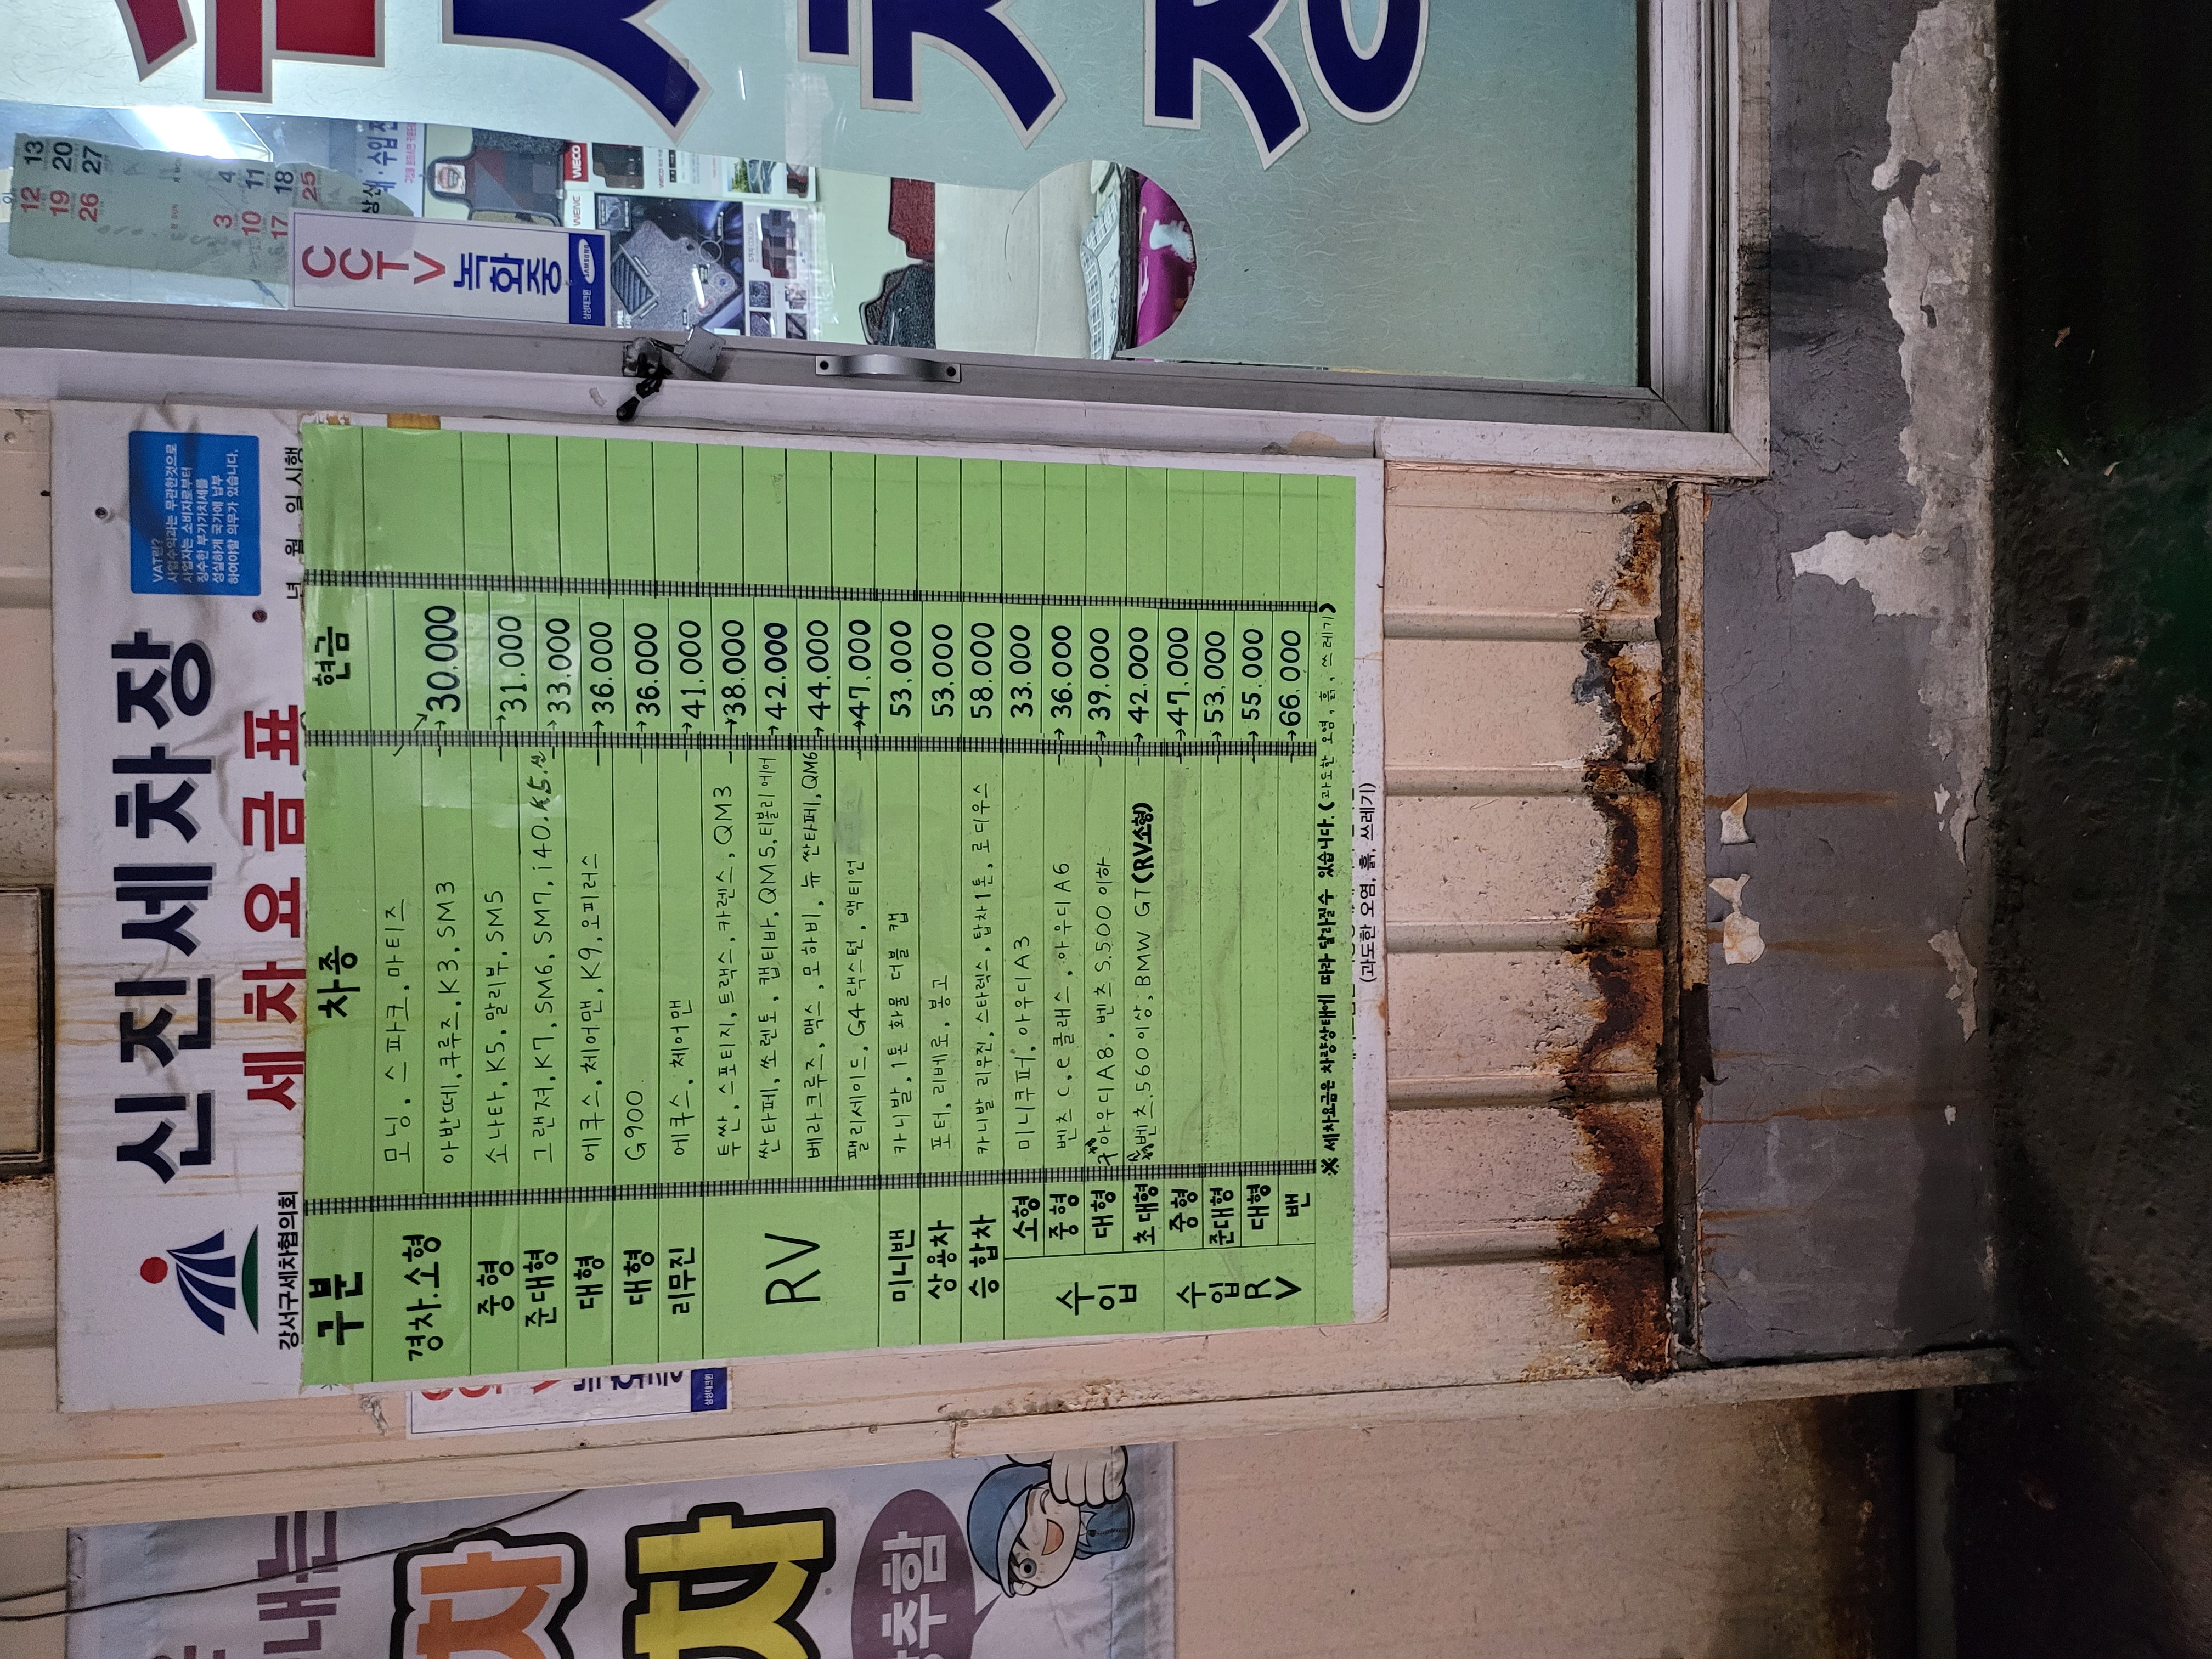 신진세차장
세차요금표
강서구세차협의회
VAT란?
사업수익과는 무관한것으로
사업자는 소비자로부터
징수한 부가가치세를
성실하게 국가에 납부
하여야할 의무가 있습니다.
년 월 일 시행
구분 차종 현금
경차.소형 모닝, 스파크, 마티즈
아반떼, 크루즈, K3, SM3 →30.000
중형 소나타, K5, 말리부, SM5 →31.000
준대형 그랜져, K7, SM6, SM7, i40. K5. →33.000
대형 에쿠스, 체어맨, K9, 오피러스 →36.000
대형 G900. →36.000
리무진 에쿠스, 체어맨 →41.000
RV
투싼, 스포티지, 트랙스, 카렌스, QM3 →38.000
싼타페, 쏘렌토, 캡티바, QM5, 티볼리에어 →42.000
베라크루즈, 맥스, 모하비, 뉴 싼타페, QM6 →44.000
팰리세이드, G4 랙스턴, 액티언 →47.000
미니밴 카니발, 1톤 화물 더블 캡 53.000
상용차 포터, 리베로, 봉고 53.000
승합차 카니발 리무진, 스타렉스, 탑차1톤, 로디우스 58.000
수입
소형 미니쿠퍼, 아우디A3 33.000
중형 벤츠 C, e클래스, 아우디 A6 →36.000
대형 아우디A8, 벤츠 S.500이하. →39.000
초대형 벤츠.560이상, BMW GT(RV소형) →42.000
수입RV
중형 →47.000
준대형 →53.000
대형 →55.000
밴 →66.000
※ 세차요금은 차량상태에 따라 달라질수 있습니다. (과도한 오염, 흙, 쓰레기)
(과도한 오염, 흙, 쓰레기)
CCTV
녹화중
삼성테크윈
SAMSUNG
12 13
19 20
26 27
3 4
10 11
17 18
25
WECO
내는
차
차
삼성테크윈